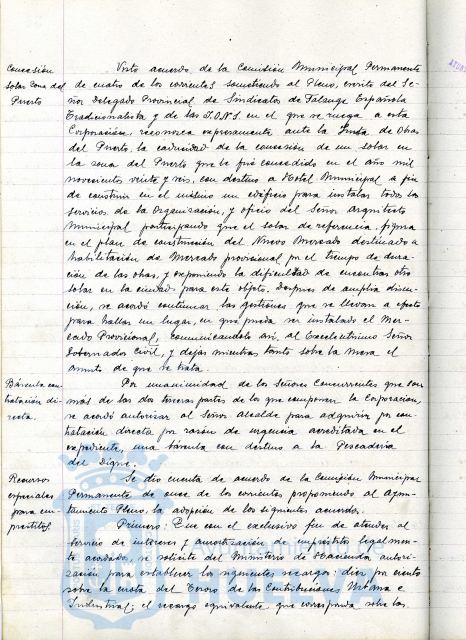 Concesión
solar zona del
Puerto
Visto acuerdo de la Comisión Municipal Permanente
de cuatro de los corrientes sometiendo al Pleno, escrito del Se-
ñor Delegado Provincial de Sindicatos de Falange Española
Tradicionalista y de las J.O.N.S. en el que se ruega a esta
Corporación, reconozca expresamente ante la Junta de Obras
del Puerto, la caducidad de la concesión de un solar en
la zona del Puerto que le fué concedido en el año mil
novecientos veinte y seis, con destino a Hotel Municipal a fin
de construir en el mismo un edificio para instalar todos los
servicios de la Organización, y oficio del Señor Arquitecto
Municipal participando que el solar de referencia, figura
en el plan de construcción del Nuevo Mercado destinado a
habilitación de Mercado provisional por el tiempo de dura-
ción de las obras, y exponiendo la dificultad de encontrar otro
solar en la ciudad para este objeto, después de amplia discu-
sión, se acordó continuar las gestiones que se llevan a efecto
para hallar un lugar, en que pueda ser instalado el Mer-
cado Provisional, comunicándolo así, al Excelentísimo Señor
Gobernador Civil, y dejar mientras tanto sobre la Mesa el
asunto de que se trata.
Báscula con-
tratación di-
recta.
Por unanimidad de los Señores Concurrentes que son
más de las dos terceras partes de los que componen la Corporación,
se acordó autorizar al Señor Alcalde para adquirir por con-
tratación directa por razón de urgencia acreditada en el
expediente, una báscula con destino a la Pescadería
del Dique.
Recursos
especiales
para em-
préstitos
Se dio cuenta de acuerdo de la Comisión Municipal
Permanente de once de los corrientes proponiendo al Ayun-
tamiento Pleno, la adopción de los siguientes acuerdos.
Primero: Que con el exclusivo fin de atender al
servicio de intereses y amortización de empréstitos legalmen-
te acordado, se solicite del Ministerio de Hacienda autori-
zación para establecer los siguientes recargos: diez por ciento
sobre la cuota del Tesoro de las Contribuciones Urbana e
Industrial; el recargo equivalente, que corresponda sobre las